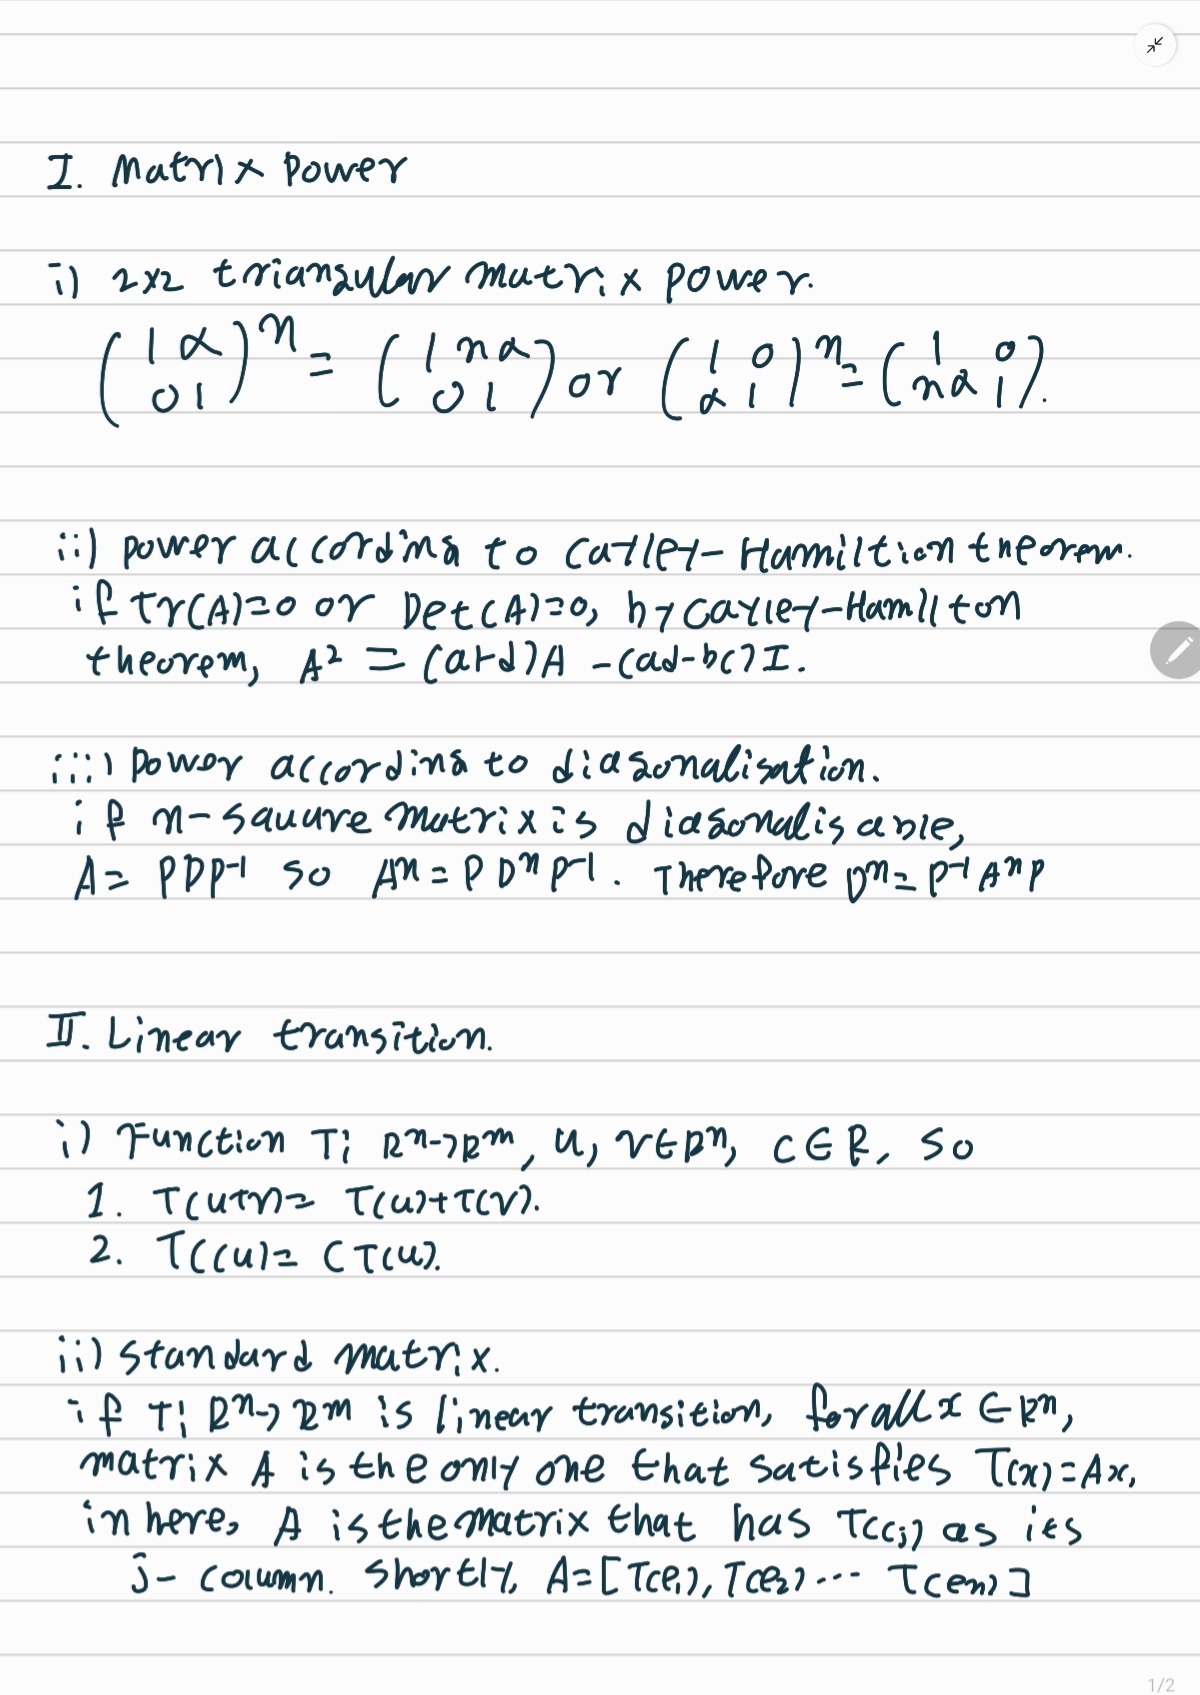 I. Matrix Power
i) 2x2 triangular matrix power.
(1 α
0 1)^n = (1 nα
0 1) or (1 0
α 1)^n = (1 0
nα 1).
ii) power according to Cayley-Hamiltion theorem.
if tr(A)=0 or Det(A)=0, by Cayley-Hamilton
theorem, A² = (a+d)A -(ad-bc)I.
iii) Power according to diagonalisation.
if n-square matrix is diagonalisable,
A= PDP⁻¹ so Aⁿ = P Dⁿ P⁻¹. Therefore Dⁿ = P⁻¹ Aⁿ P
II. Linear transition.
i) Function T: Rⁿ->Rᵐ, u, v∈Rⁿ, c∈R, so
1. T(u+v)= T(u)+T(v).
2. T(cu)= cT(u).
ii) Standard matrix.
if T: Rⁿ-> Rᵐ is linear transition, for all x ∈ Rⁿ,
matrix A is the only one that satisfies T(x)=Ax,
in here, A is the matrix that has T(cj) as its
j- column. Shortly, A=[T(e₁), T(e₂) ... T(en)]
1/2